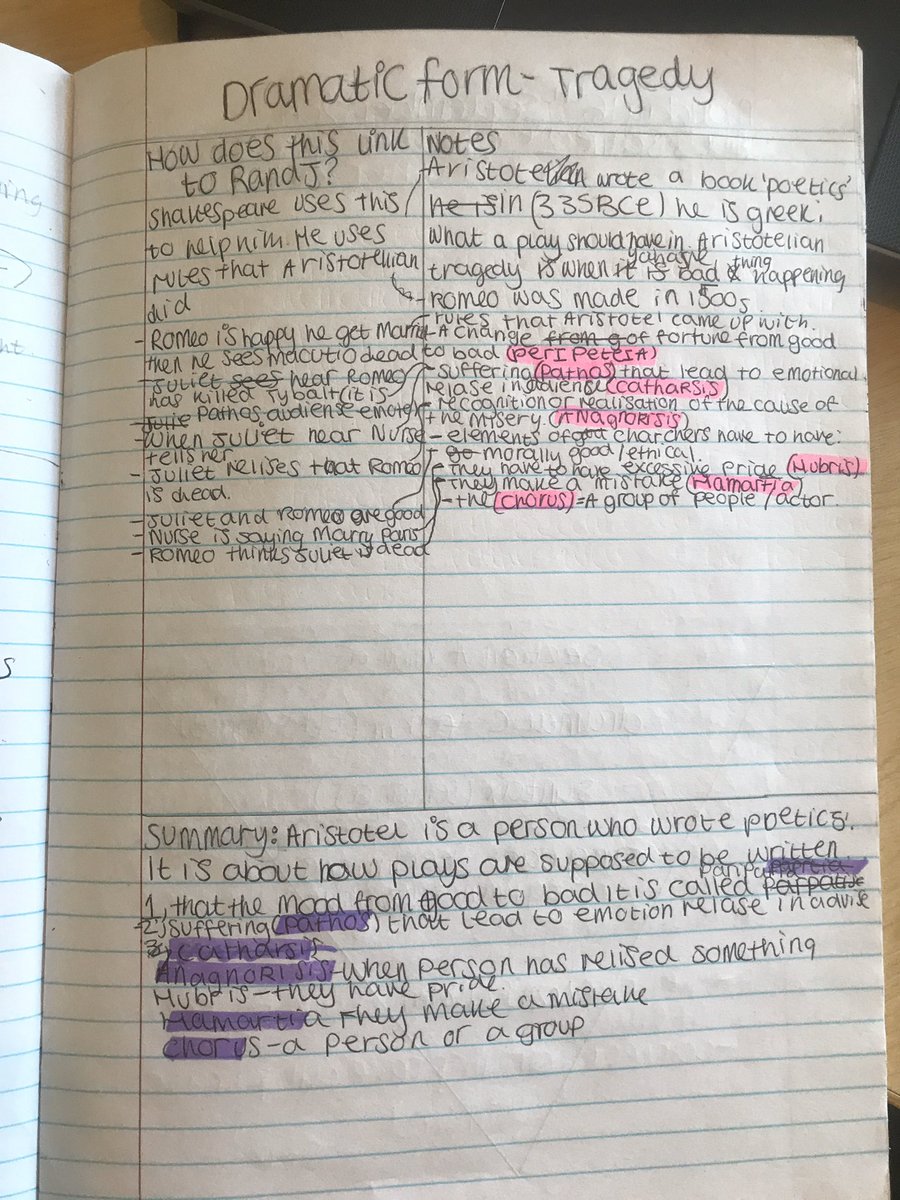 Dramatic form - Tragedy
How does this link
to RandJ?
Shakespeare uses this
to help him. He uses
rules that Aristotelian
did
- Romeo is happy he get Marry
then he sees macutio dead
- Juliet sees hear Romeo
has killed Tybalt (it is
Julie Pathos audiense emotion
- When Juliet hear Nurse
tells her
- Juliet relises that Romeo
is dead.
- Juliet and Romeo are good
- Nurse is saying Marry Paris
- Romeo thinks Juliet is dead
Notes
Aristotelian wrote a book 'poetics'
he is in (335BCE) he is greek;
What a play should have in. Aristotelian
tragedy is when it is bad thing happening
- Romeo was made in 1500s
- rules that Aristotel came up with.
- A change from g of fortune from good
to bad (PERIPETEIA)
- suffering (Pathos) that lead to emotional
relase in audiense (catharsis)
- recognition or realisation of the cause of
the misery. (ANAGRORISIS)
- elements of good charchers have to have:
- go morally good / ethical.
- They have to have excessive pride (Hubris)
- they make a mistake (Hamartia)
- the (chorus) = A group of people / actor.
Summary: Aristotel is a person who wrote poetics.
It is about how plays are supposed to be written
1, that the mood from good to bad it is called
2, suffering (pathos) that lead to emotion relase in
3, catharsis
Anagnorisis - when person has relised something
Hubris - they have pride.
Hamartia They make a mistake
chorus - a person or a group